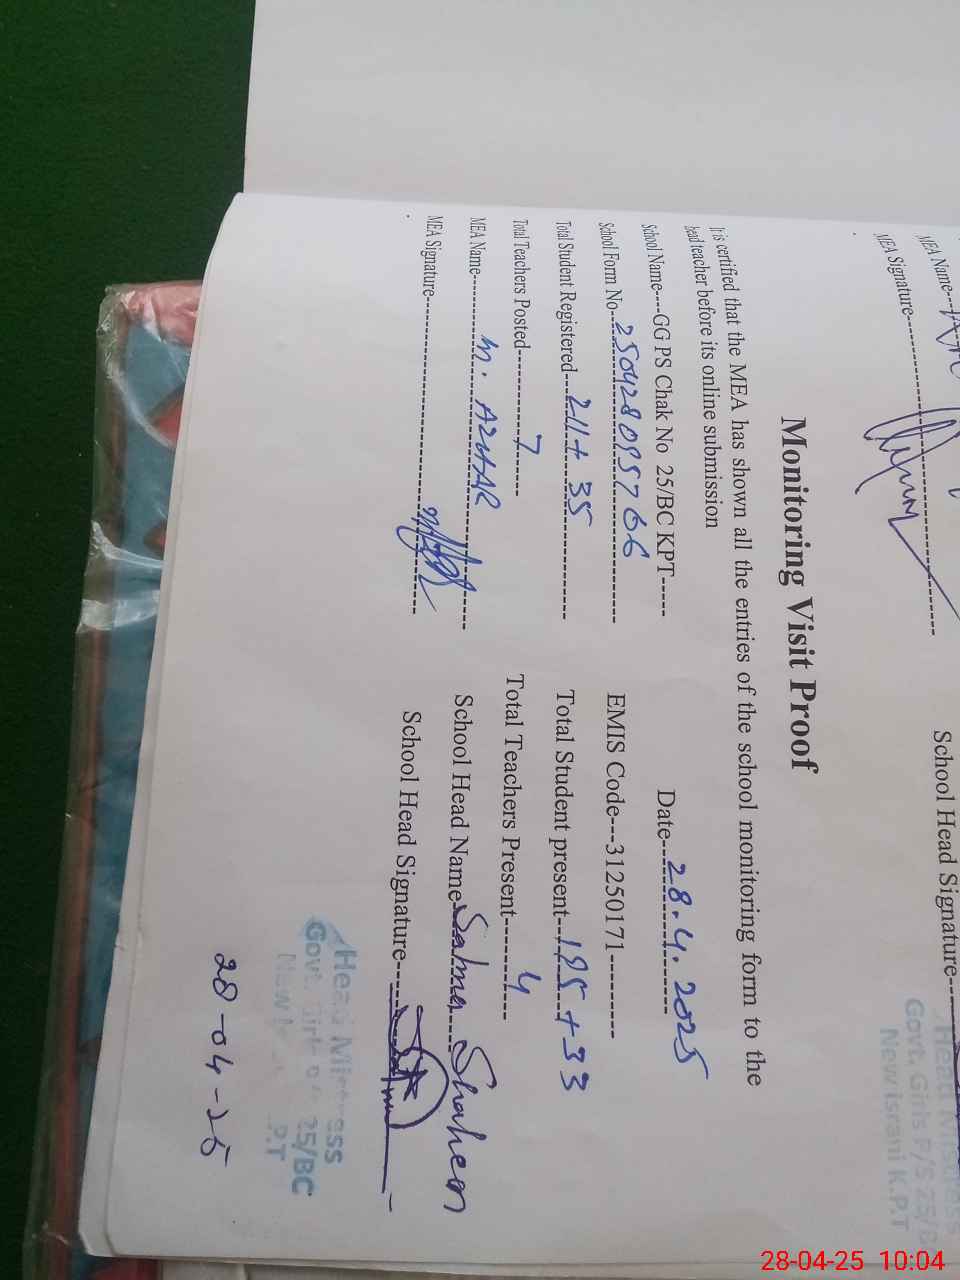 MEA Name---
School Head Signature---
MEA Signature---
Head Mistress
Govt. Girls P/S 25/B
New israni K.P.T
Monitoring Visit Proof
It is certified that the MEA has shown all the entries of the school monitoring form to the
head teacher before its online submission
Date--- 28.4.2025
School Name----GG PS Chak No 25/BC KPT-----
EMIS Code---31250171----------
School Form No--- 250428095766
Total Student Registered--- 211+ 35
Total Student present--- 195 +33
Total Teachers Posted--- 7
Total Teachers Present--- 4
MEA Name--- M. AZHAR
School Head Name Salma Shaheen
MEA Signature---
School Head Signature---
Head Mistress
Govt. Girls 25/BC
New P.T
28-04-25
28-04-25 10:04